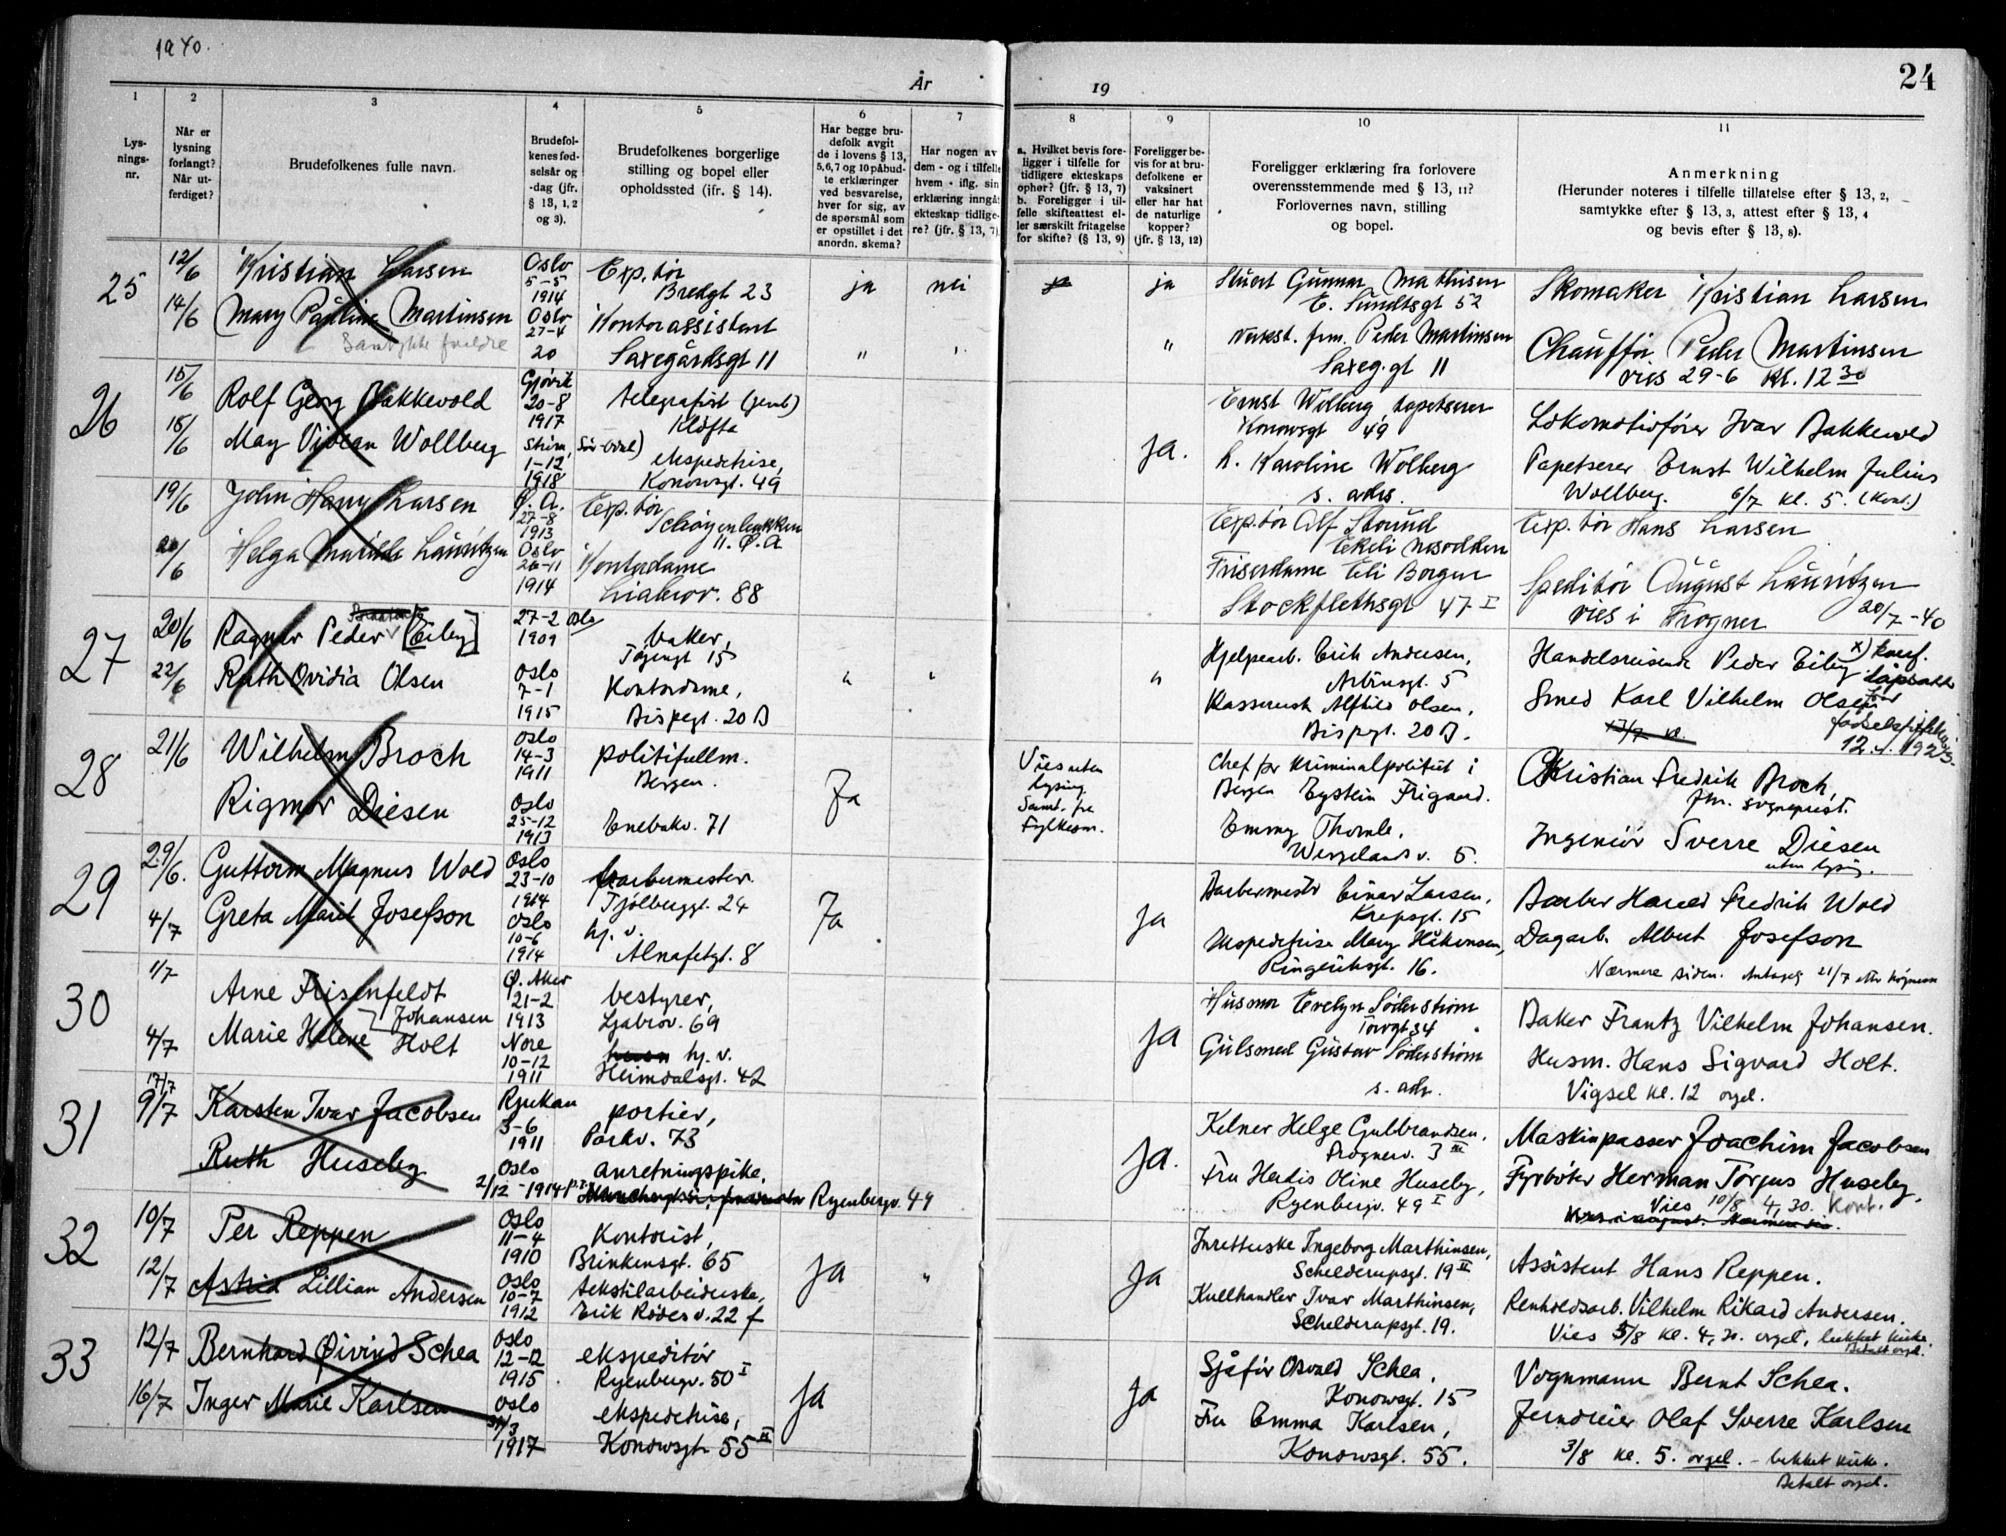 1940.
År
19
24
1
2
3
4
5
6
7
8
9
10
11
Lys-
nings-
nr.
Når er
lysning
forlangt?
Når ut-
ferdiget?
Brudefolkenes fulle navn.
Brudefol-
kenes fød-
selsår og
-dag (jfr.
§ 13, 1, 2
og 3).
Brudefolkenes borgerlige
stilling og bopel eller
opholdssted (ifr. § 14).
Har begge bru-
defolk avgit
de i lovens § 13,
5,6,7 og 10 påbud-
te erklæringer
ved besvarelse,
hver for sig, av
de spørsmål som
er opstillet i det
anordn. skema?
Har nogen av
dem - og i tilfelle
hvem - iflg. sin
erklæring inngåt
ekteskap tidlige-
re? (jfr. § 13, 7).
a. Hvilket bevis fore-
ligger i tilfelle for
tidligere ekteskaps
ophør? (jfr. § 13, 7)
b. Foreligger i til-
felle skifteattest el-
ler særskilt fritagelse
for skifte? (§ 13, 9)
Foreligger be-
vis for at bru-
defolkene er
vaksinert
eller har hat
de naturlige
kopper?
(jfr. § 13, 12)
Foreligger erklæring fra forlovere
overensstemmende med § 13, 11?
Forlovernes navn, stilling
og bopel.
Anmerkning
(Herunder noteres i tilfelle tillatelse efter § 13, 2,
samtykke efter § 13, 3, attest efter § 13, 4
og bevis efter § 13, 8).
25
12/6
14/6
Kristian Larsen
Mary Pauline Martinsen
Samtykke foreldre
Oslo
5-5
1914
Oslo
27-4
20
Exp.tør
Bredgt 23
Kontorassistent
Saxegårdsgt 11
ja
nei
"
ja
ja
"
Gunnar Mathisen
E. Sundtsgt 52
Verkst. frm. Peder Martinsen
Saxeg.gt 11
Skomaker Kristian Larsen
Chauffør Peder Martinsen
vies 29-6 kl. 12 30
26
15/6
18/6
Rolf Georg Bakkevold
May Vivean Wollberg
Gjøvik
20-8
1917
1-12
1918
telegrafist (jernb)
Kløfta
ekspeditrise,
Konowsgt. 49
ja.
Ernst Wolberg tapetserer
Konowsgt 49
Karoline Wolberg
s. adrs.
Lokomotivfører Ivar Bakkevold
Tapetserer Ernst Wilhelm Julius
Wollberg. 6/7 kl. 5. (Kont.)
19/6
20/6
John Harry Larsen
Helga Matilde Lauritzen
Ø. A.
27-8
1913
Oslo
26-11
1914
Exp.tør
Schøyenbakken
11. Ø. A
Kontordame
Liabrov. 88
Exp.tør Alf Strund
Ekeli Nesodden
Frisørdame Eli Borgen
Stockflethsgt 47 I
Exp.tør Hans Larsen
Speditør August Lauritzen
vies i Frogner 20/7-40
27
20/6
22/6
Ragnar Peder [Eiby]
Ruth Ovidia Olsen
27-2 Oslo
1909
Oslo
7-1
1915
baker,
Tøyengt 15
Kontordame,
Bispegt. 20 B
"
"
"
Hjelpearb. Erik Andersen,
Arbinsgt. 5
Kassererske Alfhild Olsen,
Bispegt. 20 B.
Handelsreisende Peder Eiby x) konf.
dåpsattest
Smed Karl Vilhelm Olsen
13/7 kl.
28
21/6
Wilhelm Broch
Rigmor Diesen
Oslo
14-3
1911
Oslo
25-12
1913
politifullm.
Bergen.
Enebakv. 71
Ja
Vies uten
lysing.
Samt. fra
Fylkesm.
Chef for kriminalpolitiet i
Bergen Eystein Frigaard.
Emmy Thomle.
Wergelandsv. 5.
Christian Fredrik Broch,
fhv. sogneprest.
Ingeniør Sverre Diesen
uten lysing.
29
29/6.
4/7
Guttorm Magnus Wold
Greta Marit Josefson
Oslo
23-10
1914
Oslo
10-6
1914
barbermester.
Fjølberggt. 24
hj. v.
Alnafetgt. 8
Ja
ja
Barbermester Einar Larsen,
Krapsgt. 15
Ekspeditrise Mary Håkonsen,
Ringeriksgt. 16.
Barber Harald Fredrik Wold
Dagarb. Albert Josefson
Nærmere siden. Antagelig 21/7 etter høymessen
30
1/7
4/7
Arne Frisenfeldt
Johansen
Marie Helene Holt
Ø. Aker
21-2
1913
Nore
10-12
1911
bestyrer,
Ljabrov. 69
hj. v.
Heimdalsgt. 42
ja
Husmor Evelyn Söderstrøm
Torvgt 34
Gulsmed Gustav Söderstrøm
s. adr.
Baker Frantz Vilhelm Johansen.
Husm. Hans Sigvard Holt.
Vigsel kl. 12 orgel.
31
17/7
9/7
Karsten Ivar Jacobsen
Ruth Huseby
Rjukan
3-6
1911
Oslo
2/12-1914
portier,
Parkv. 73
anretningspike,
Ryenbergv. 49
ja.
Kelner Helge Gulbrandsen,
Frognerv. 3 III
Fru Herdis Oline Huseby,
Ryenbergv. 49 I
Maskinpasser Joachim Jacobsen
Fyrbøter Herman Torjus Huseby,
Vies 10/8 4,30. Kont.
32
10/7
12/7
Per Reppen
Astrid Lillian Andersen
Oslo
11-4
1910
Oslo
10-7
1912
Kontorist,
Brinkensgt. 65
tekstilarbeiderske,
Erik Rødes v. 22 f
ja
"
ja
Ingeborg Marthinsen,
Schelderupsgt. 19 II
Kullhandler Ivar Marthinsen,
Schelderupsgt. 19.
Assistent Hans Reppen.
Renholdsarb. Vilhelm Rikard Andersen.
Vies 3/8 kl. 4,30. orgel, lukket kirke
Betalt orgel.
33
12/7
16/7
Bernhard Øivind Schea
Inger Marie Karlsen
Oslo
12-12
1915
Oslo
31/3
1917
ekspeditør
Ryenbergv. 50 I
ekspeditrise,
Konowsgt. 55 II
ja
ja
Sjåfør Osvald Schea.
Konowsgt. 15
Fru Emma Karlsen,
Konowsgt. 55.
Vognmann Bernt Schea.
Jerndreier Olaf Sverre Karlsen
3/8 kl. 5. orgel. - lukket kirke.
Betalt orgel.